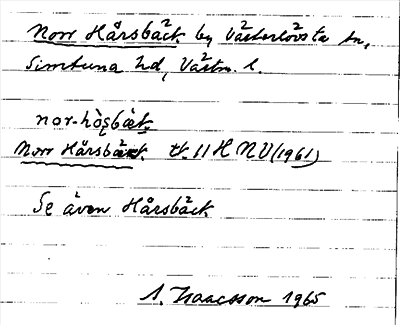 Norr Hårsbäck by Västerlövsta sn,
Simtuna hd, Västm. l.
nor-hò̜șbàk.
Norr Hårsbäck. tr. 11 H NV (1961)
Se även Hårsbäck
A. Isaacsson 1965